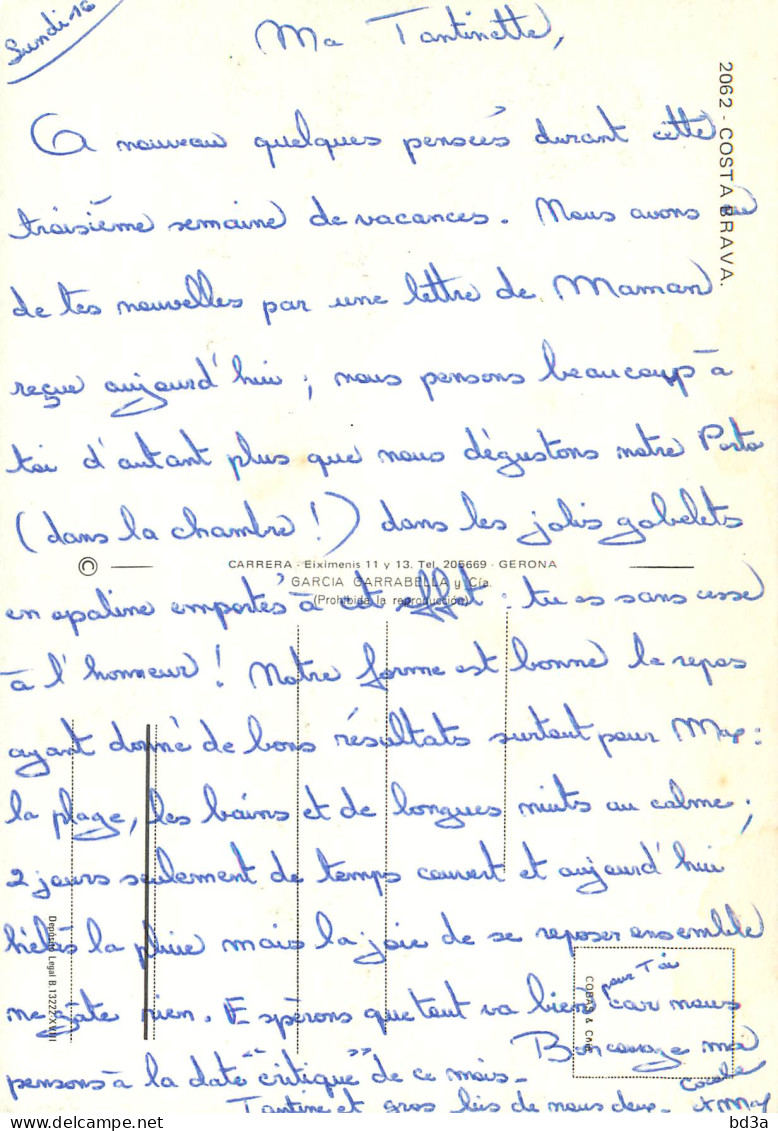 Lundi 16
Ma Tantinette,
A nouveau quelques pensées durant cette
troisième semaine de vacances. Nous avons eu
de tes nouvelles par une lettre de Maman
reçue aujourd'hui ; nous pensons beaucoup à
toi d'autant plus que nous dégustons notre Porto
(dans la chambre !) dans les jolis gobelets
en opaline emportés à cet effet : tu es sans cesse
à l'honneur ! Notre forme est bonne le repos
ayant donné de bons résultats surtout pour Max :
la plage, les bains et de longues nuits au calme ;
2 jours seulement de temps couvert et aujourd'hui
hélas la pluie mais la joie de se reposer ensemble
ne gâte rien. Espérons que tout va bien pour Toi car nous
pensons à la date "critique" de ce mois. Bon courage ma
Tantine et gros bis de nous deux.
et Max
2062 - COSTA BRAVA.
© CARRERA - Eiximenis 11 y 13. Tel. 205669 - GERONA
GARCIA GARRABELLA y Cía.
(Prohibida la reproducción)
Depósito Legal B. 13222-XVIII